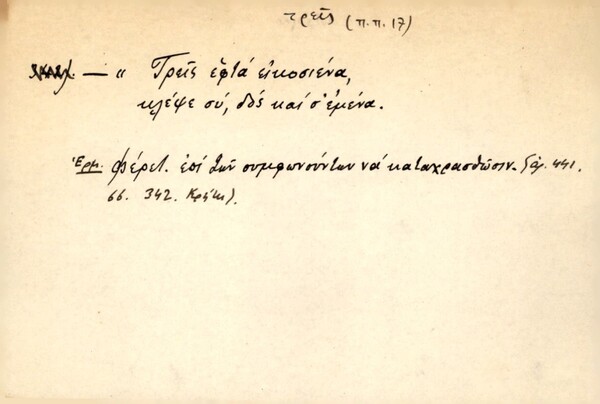 τρεῖς (π.π. 17)
— „ Τρεῖς ἑφτά εἰκοσιένα,
κλέψε σύ, δός καί σ' ἐμένα.
Ἑρμ. Φέρετ. ἐπί τῶν συμφωνούντων νά καταχρασθῶσιν. (ἀρ. 441.
66. 342. Κρήτη).